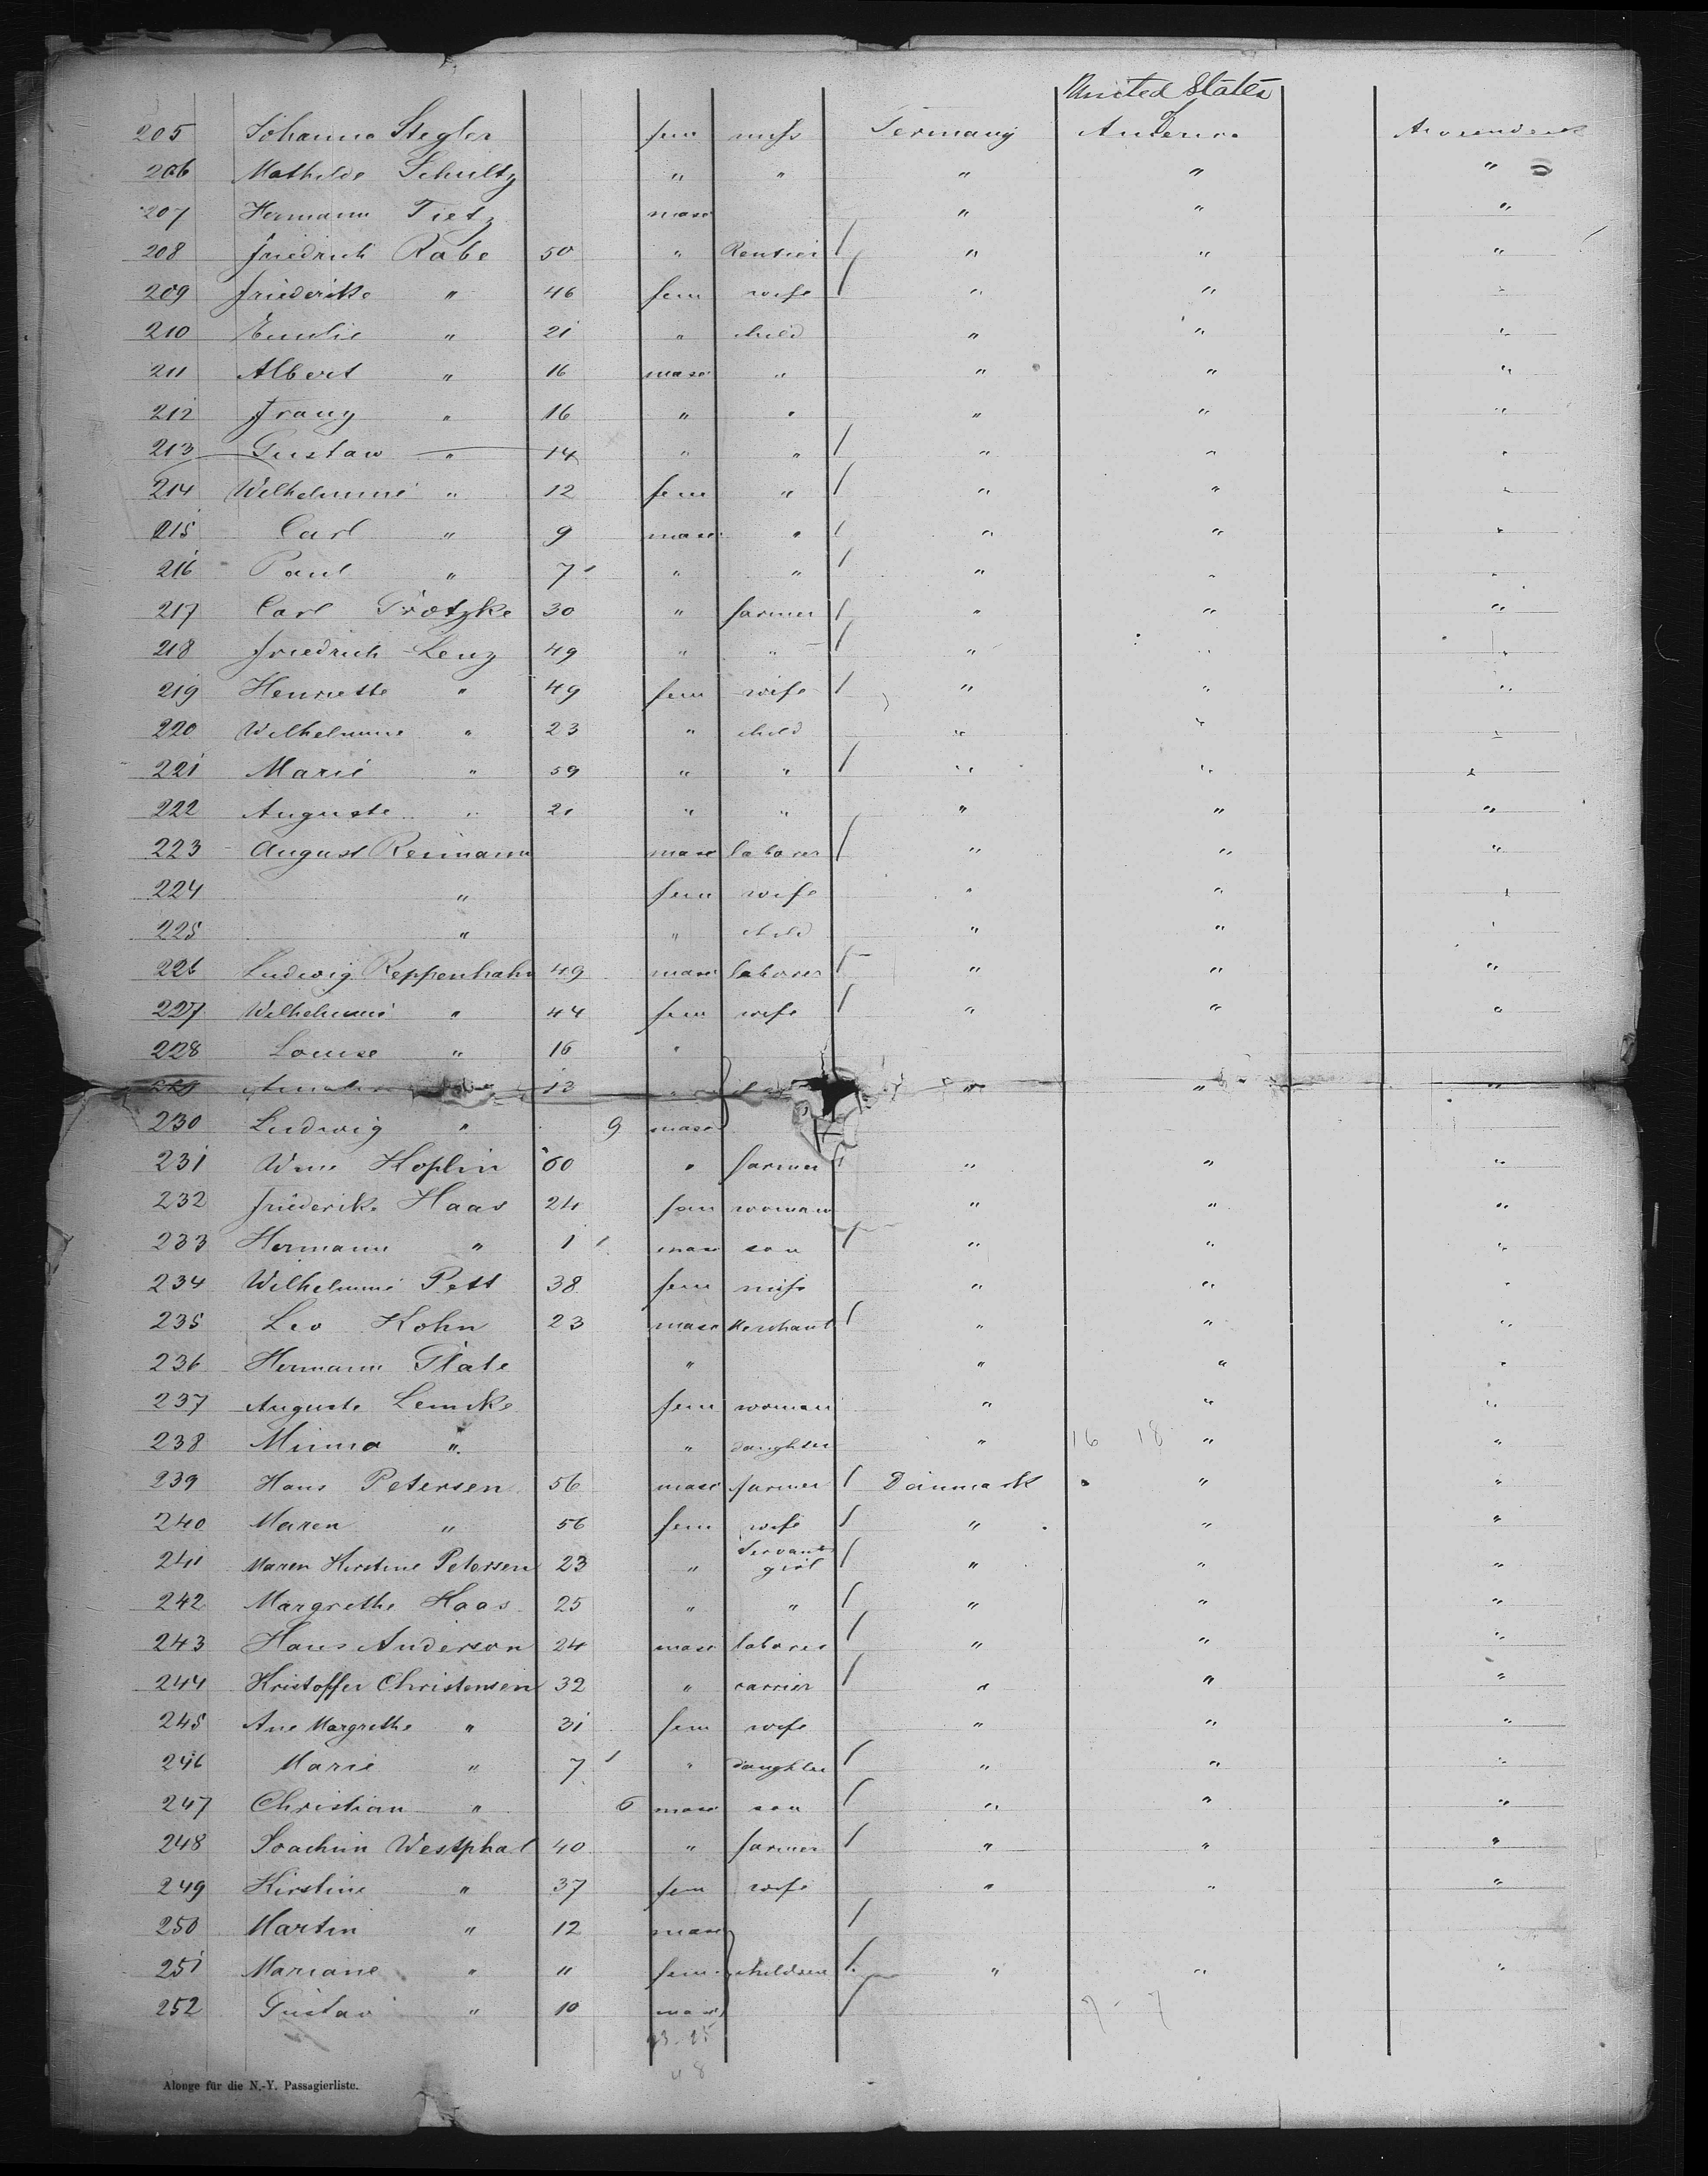 United States
205 Johanna Stegler fem miss Germany America
206 Mathilde Schultz " " " " "
207 Hermann Tietz masc " " "
208 Friedrich Rabe 50 " Rentier / " " "
209 Friederike " 46 fem wife / " " "
210 Emilie " 21 " child " " "
211 Albert " 16 masc " " " "
212 Franz " 16 " " " " "
213 Gustav " 14 " " / " " "
214 Wilhelmine " 12 fem " / " " "
215 Carl " 9 masc " / " " "
216 Paul " 7 " " / " " "
217 Carl Protzke 30 " farmer / " " "
218 Friedrich Lenz 49 " " / " " "
219 Henriette " 49 fem wife / " " "
220 Wilhelmine " 23 " child " " "
221 Marie " 59 " " / " " "
222 Auguste " 21 " " " " "
223 August Reimann masc laborer / " " "
224 " fem wife " " "
225 " " child " " "
226 Ludwig Reppenhahn 49 masc laborer / " " "
227 Wilhelmine " 44 fem wife / " " "
228 Louise " 16 "
13 " " " "
230 Ludwig " 9 masc
231 Wm Koplin 60 " farmer / " " "
232 Friederike Haas 24 fem woman " " "
233 Hermann " 1 masc son / " " "
234 Wilhelmine Pett 38 fem miss " " "
235 Leo Kohn 23 masc Merchant / " " "
236 Hermann Plate " " " "
237 Auguste Lemcke fem woman " " "
238 Minna " " daughter " 16 18 " "
239 Hans Petersen 56 masc farmer / Danmark " "
240 Maren " 56 fem wife / " " "
241 Maren Kirstine Petersen 23 " Servant girl / " " "
242 Margrethe Haas 25 " " / " " "
243 Hans Anderson 24 masc laborer / " " "
244 Kristoffer Christensen 32 " carrier / " " "
245 Ane Margrethe " 31 fem wife " " "
246 Marie " 7 " daughter / " " "
247 Christian " 6 masc son / " " "
248 Joachim Westphal 40 " farmer / " " "
249 Kirstine " 37 fem wife " " "
250 Martin " 12 masc /
251 Mariane " " fem children / " " "
252 Gustav " 10 masc / 7 - 7
23-25
48
Alonge für die N.-Y. Passagierliste.